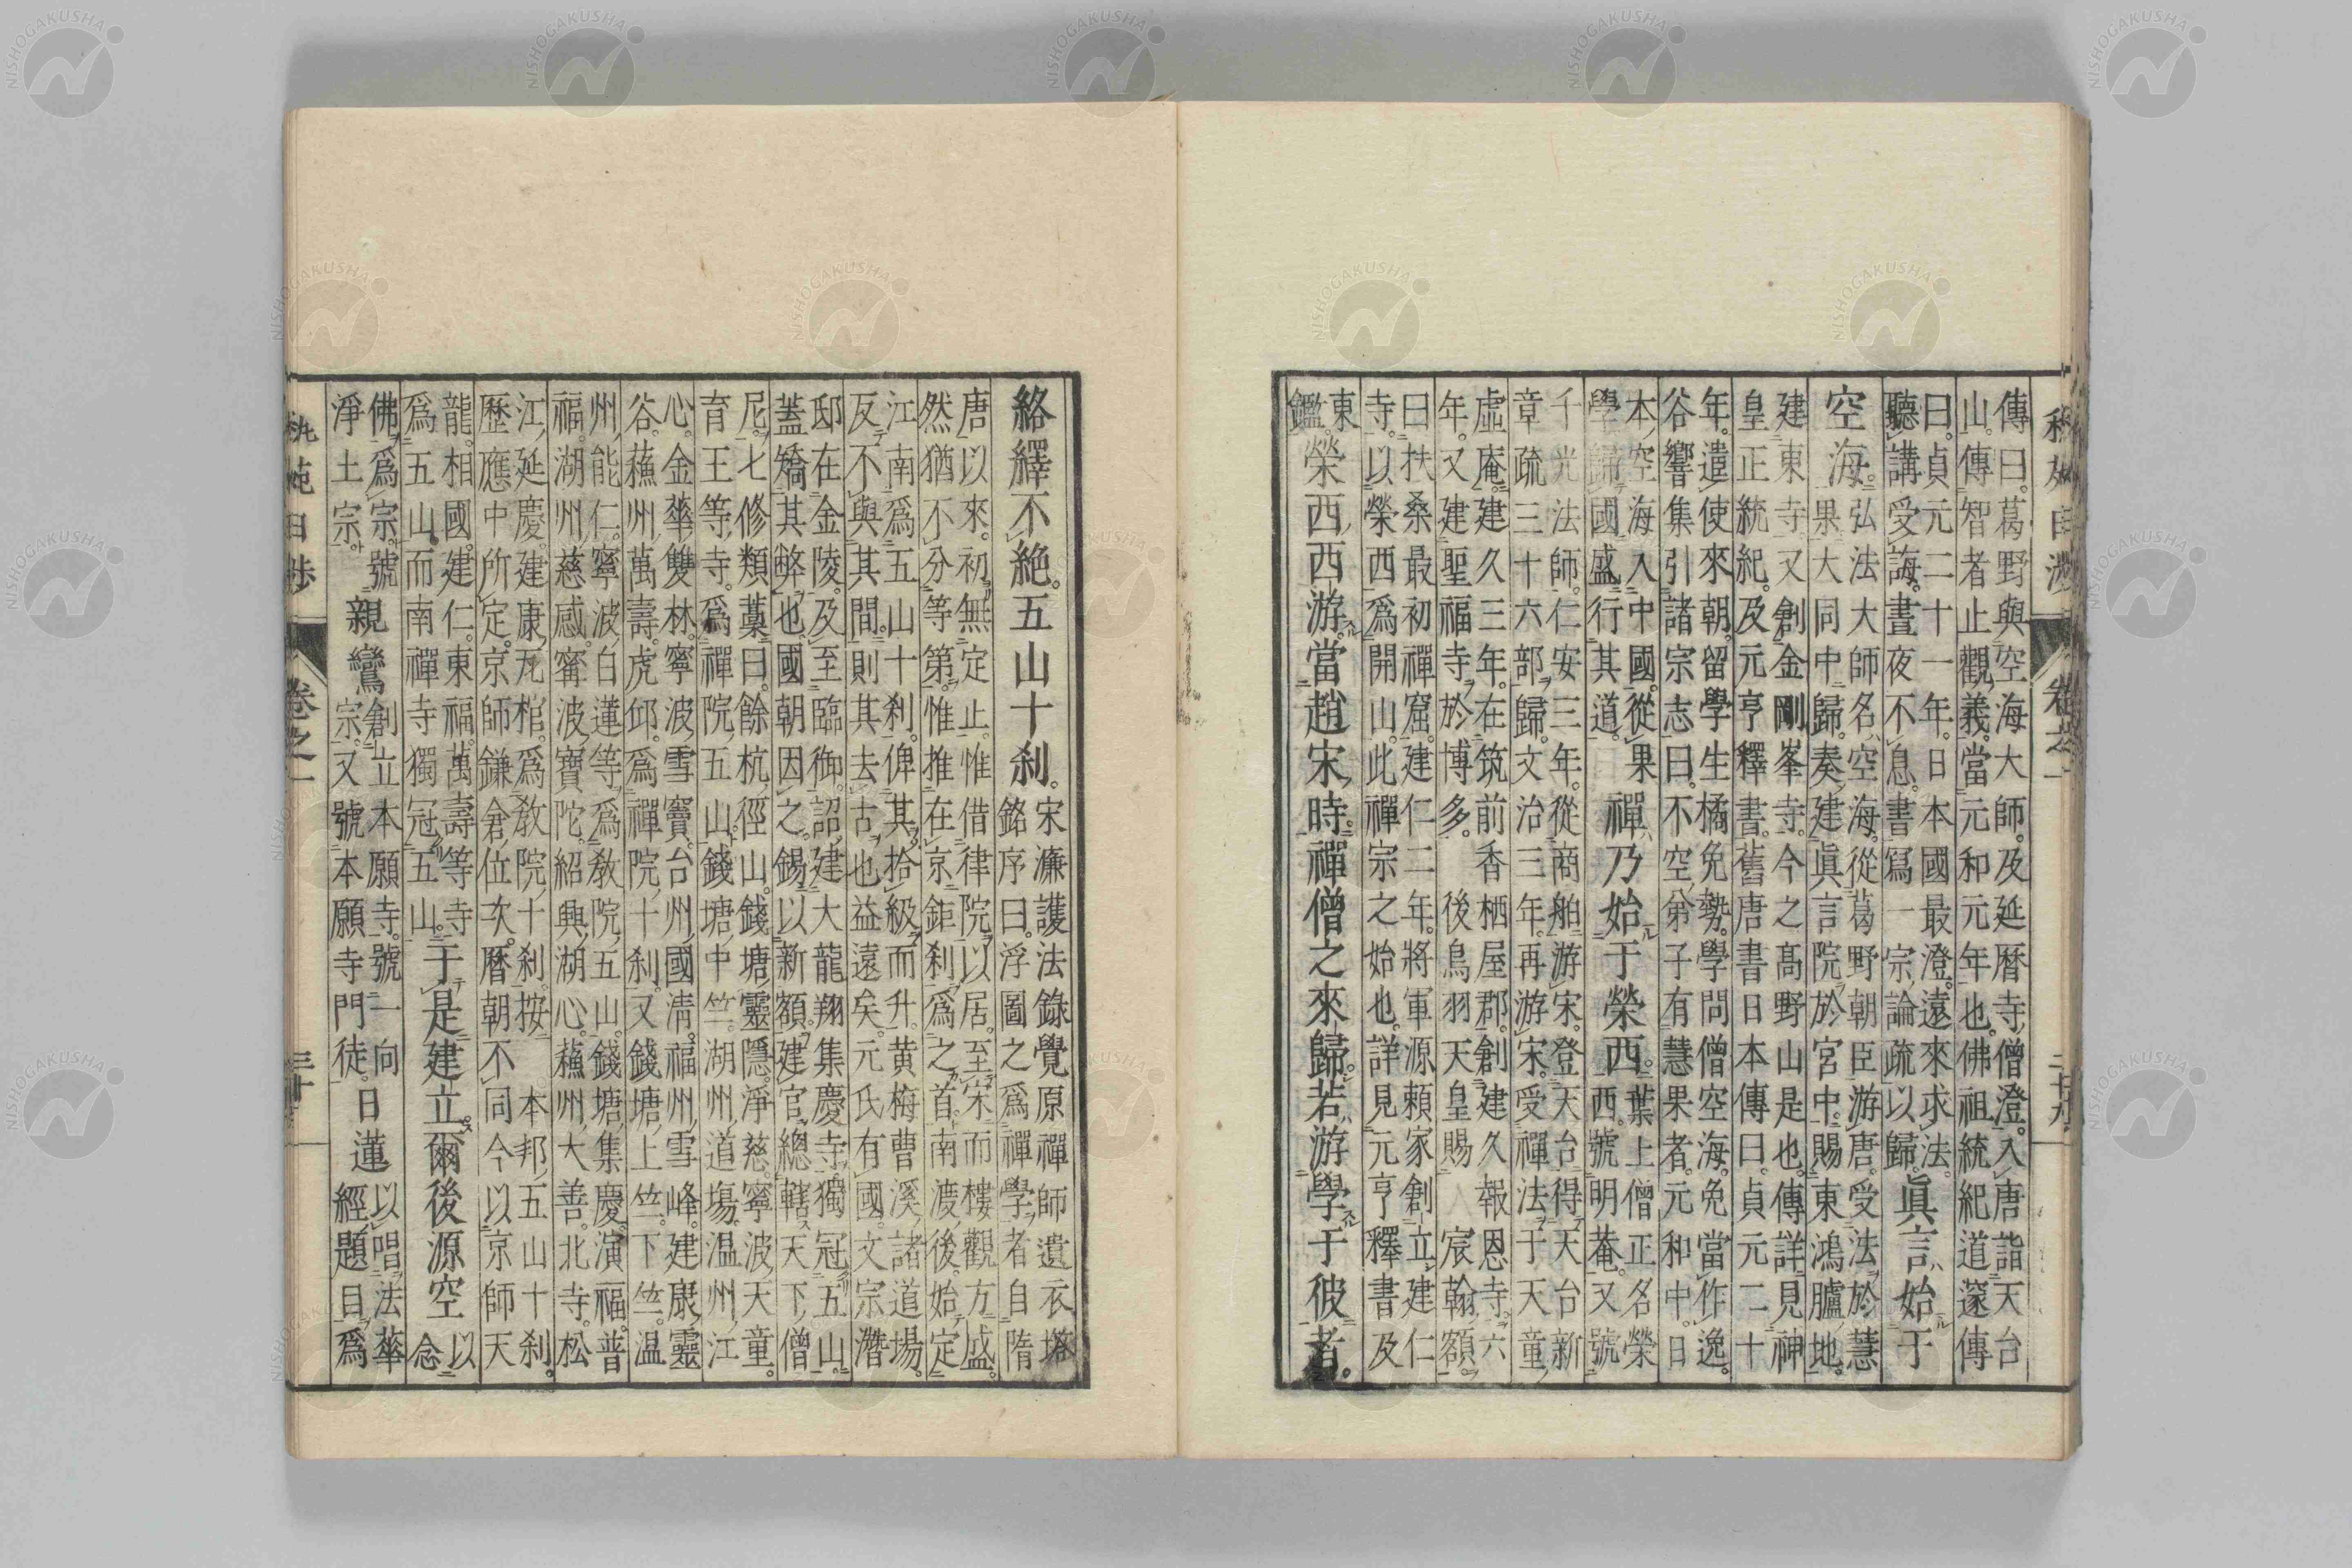 傳曰。葛野與空海大師。及延暦寺僧澄。入唐詣天台
山。傳智者止觀義。當元和元年也。佛祖統紀道邃傳
曰。貞元二十一年。日本國最澄。遠來求法。
聽講受誨。晝夜不息。書寫一宗論疏以歸。
眞言始于
空海。
弘法大師名空海。從葛野朝臣游唐。受法於慧
果大同中歸。奏建眞言院於宮中。賜東鴻臚地。
建東寺又創金剛峯寺。今之髙野山是也。傳詳見神
皇正統紀。及元亨釋書。舊唐書日本傳曰。貞元二十
年。遣使來朝。留學生橘免勢。學問僧空海。免當作逸。
谷響集引諸宗志曰。不空弟子有慧果者。元和中。日
本空海入中國。從果
學歸國盛行其道。
禪乃始于榮西。
葉上僧正名榮
西。號明菴。又號
千光法師。仁安三年。從商舶游宋。登天台得天台新
章疏三十六部歸。文治三年。再游宋。受禪法于天童
虛庵。建久三年。在筑前香栖屋郡。創建久報恩寺。六
年。又建聖福寺於博多。後鳥羽天皇賜宸翰額。
曰扶桑最初禪窟。建仁二年。將軍源頼家創立建仁
寺。以榮西爲開山。此禪宗之始也。詳見元亨釋書及
東
鑑。
榮西西游。當趙宋時。禪僧之來歸。若游學于彼者。
卷之一
絡繹不絶。五山十刹。
宋濂護法錄覺原禪師遺衣塔
銘序曰。浮圖之爲禪學者。自隋
唐以來。初無定止。惟借律院以居。至宋而樓觀方盛。
然猶不分等第。惟推在京鉅刹爲之首。南渡後。始定
江南爲五山十刹。俾其拾級而升。黄梅曹溪諸道場。
反不與其間。則其去古也益遠矣。元氏有國。文宗濳
邸在金陵。及至臨御。詔建大龍翔集慶寺。獨冠五山。
蓋矯其弊也。國朝因之。錫以新額。建官總轄天下僧
尼。七修類藁曰。餘杭徑山。錢塘靈隱。淨慈。寧波天童。
育王等寺。爲禪院五山。錢塘中竺。湖州道塲。温州江
心。金華雙林。寧波雪竇。台州國淸。福州雪峰。建康靈
谷。蘓州萬壽。虎邱。爲禪院十刹。又錢塘上竺。下竺。温
州能仁。寧波白蓮等。爲敎院五山。錢塘集慶。演福。普
福。湖州慈感。寗波寶陀。紹興湖心。蘓州大善。北寺。松
江延慶。建康瓦棺。爲敎院十刹。按 本邦五山十刹。
歴應中所定。京師鎌倉位次。暦朝不同。今以京師天
龍。相國。建仁。東福。萬壽等寺
爲五山。而南禪寺獨冠五山。
于是建立。爾後源空
以
念
佛爲宗。號
淨土宗。
親鸞
創立本願寺。號一向
宗。又號本願寺門徒。
日蓮
以唱法華
經題目爲
卷之一 三十